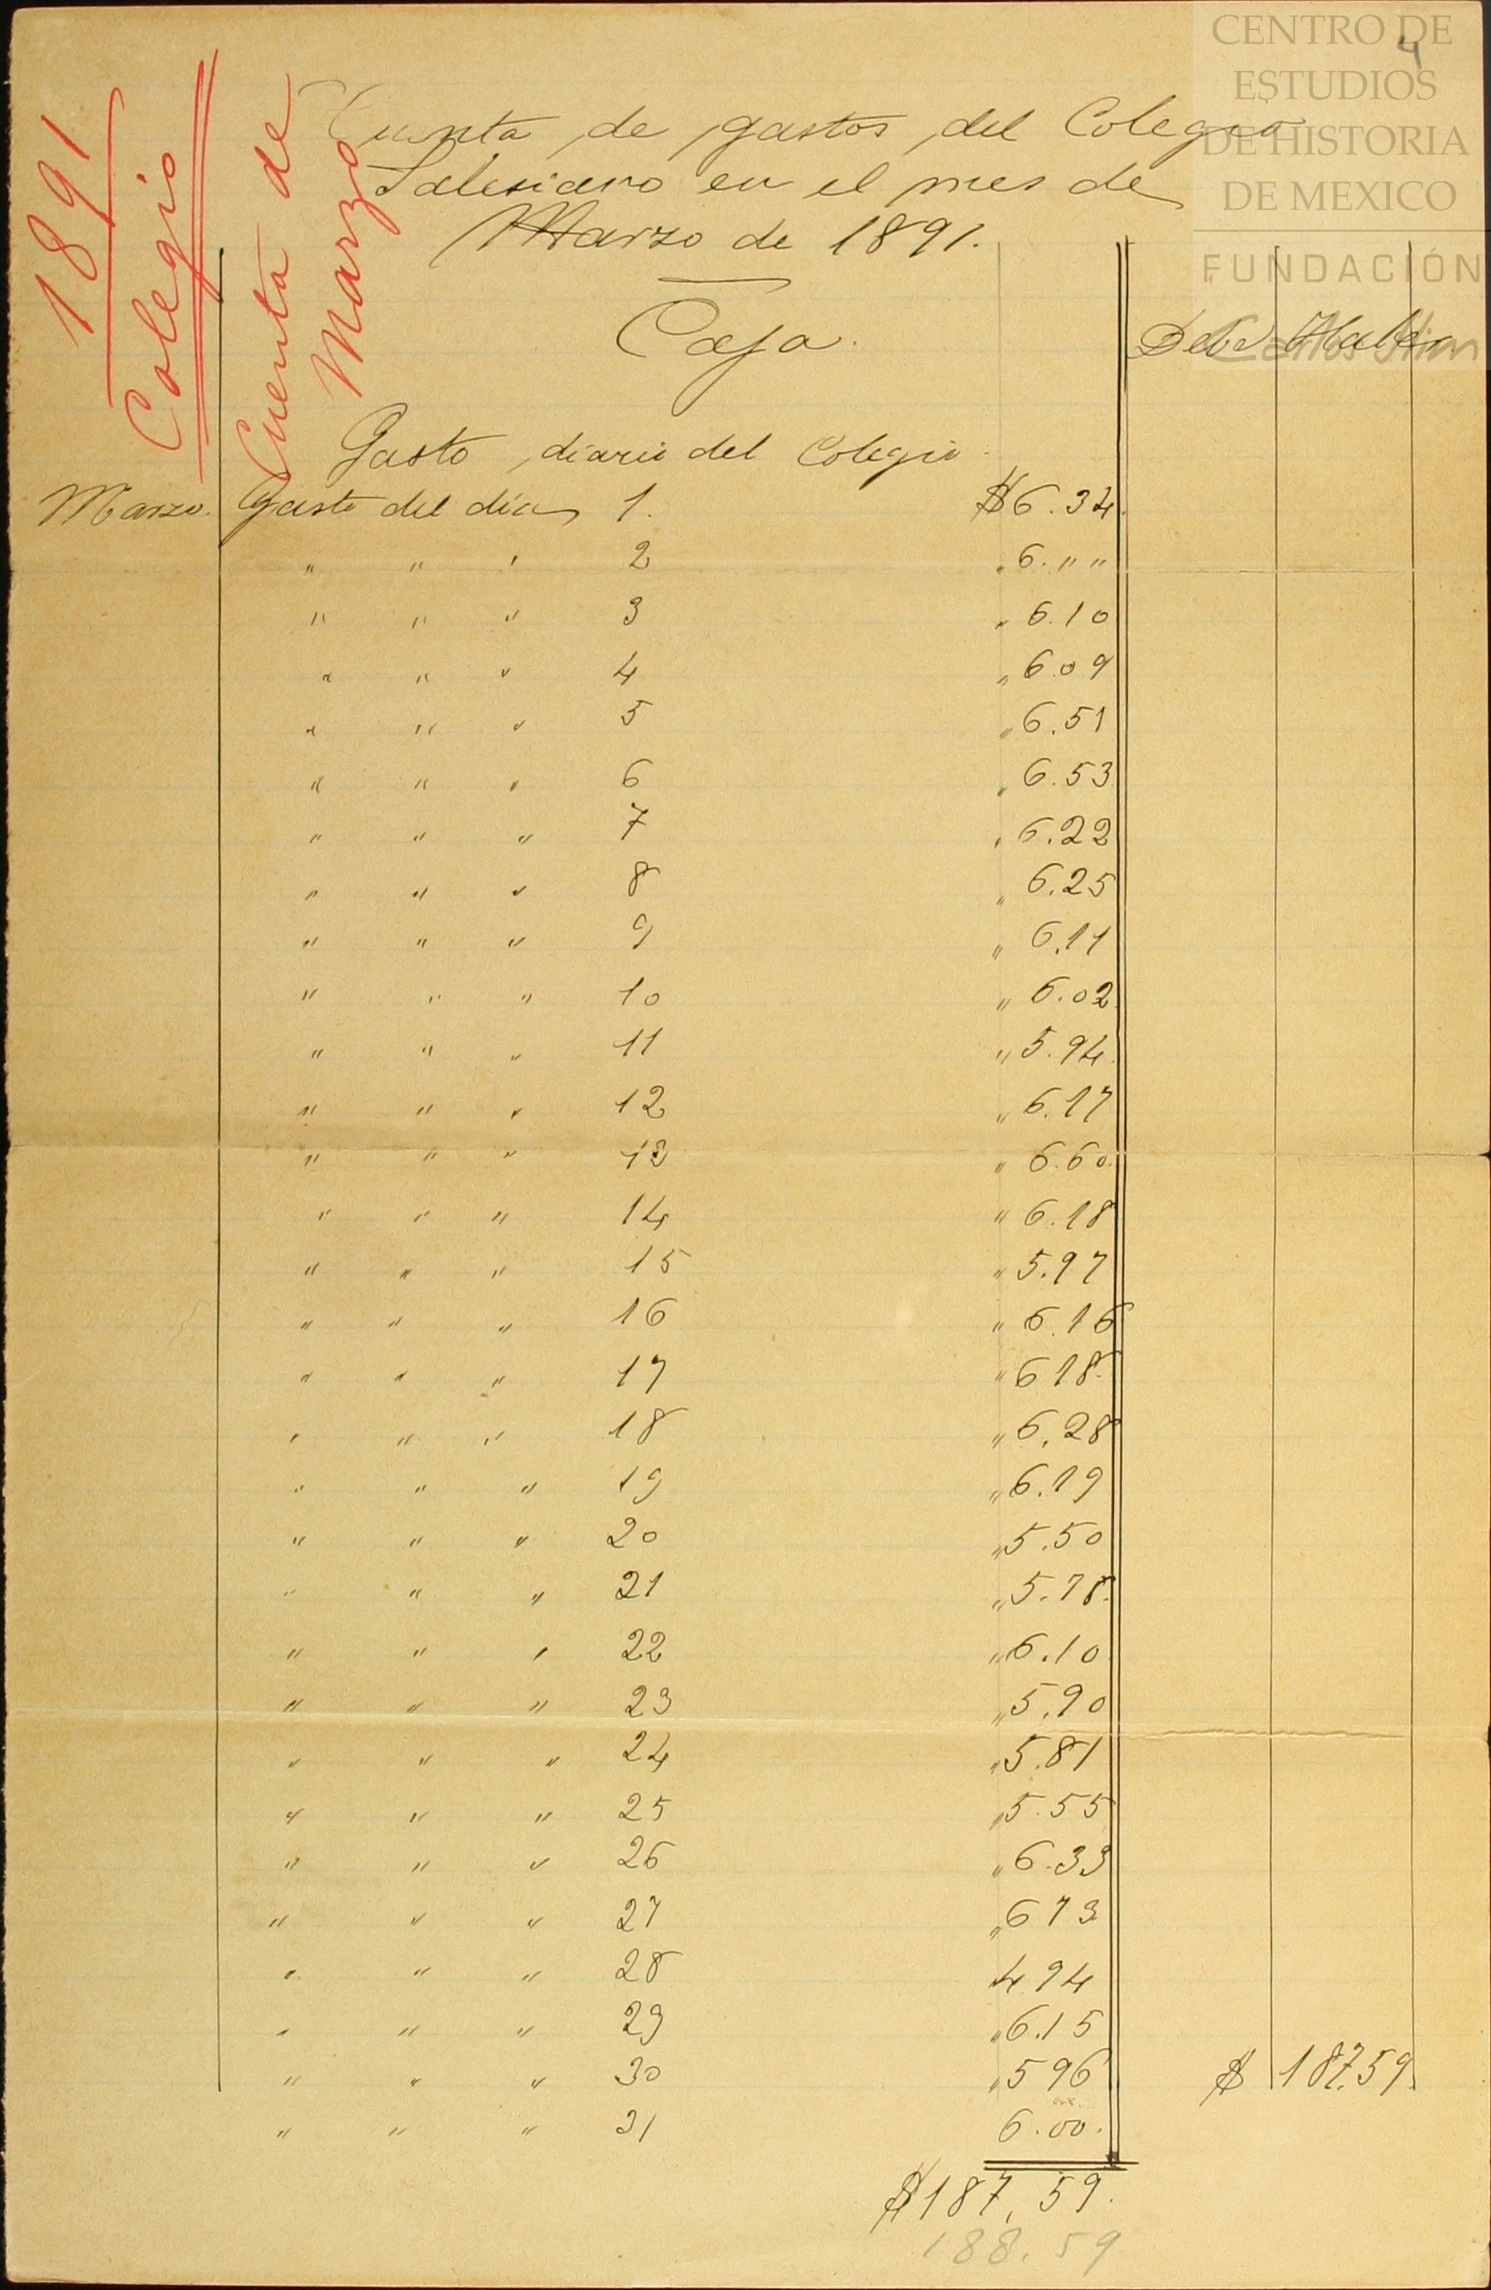 CENTRO DE
ESTUDIOS
DE HISTORIA
DE MEXICO
FUNDACIÓN
Carlos Slim
4
1891
Colegio
Cuenta de
Marzo
Cuenta de gastos del Colegio
Salesiano en el mes de
Marzo de 1891.
Caja.
Debe Haber
Gasto diario del Colegio.
Marzo. Gasto del día 1. $6.34.
" " " 2 " 6. " "
" " " 3 " 6.10
" " " 4 " 6.09
" " " 5 " 6.51
" " " 6 " 6.53
" " " 7 " 6.22
" " " 8 " 6.25
" " " 9 " 6.11
" " " 10 " 6.02
" " " 11 " 5.94.
" " " 12 " 6.17
" " " 13 " 6.60.
" " " 14 " 6.18
" " " 15 " 5.97
" " " 16 " 6.16
" " " 17 " 6 18.
" " " 18 " 6.28
" " " 19 " 6.19
" " " 20 " 5.50
" " " 21 " 5.78.
" " " 22 " 6.10
" " " 23 " 5.90
" " " 24 " 5.81
" " " 25 " 5.55
" " " 26 " 6.33
" " " 27 " 6 73
" " " 28 4 94
" " " 29 " 6.15
" " " 30 " 5 96 $ 187.59.
" " " 31 6.00.
$187,59.
188.59